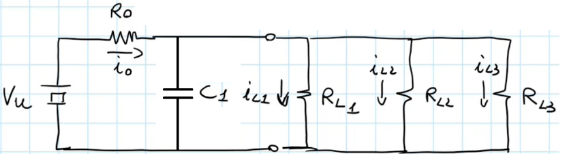 Ro
io
Vu
C1
iL1
RL1
iL2
RL2
iL3
RL3